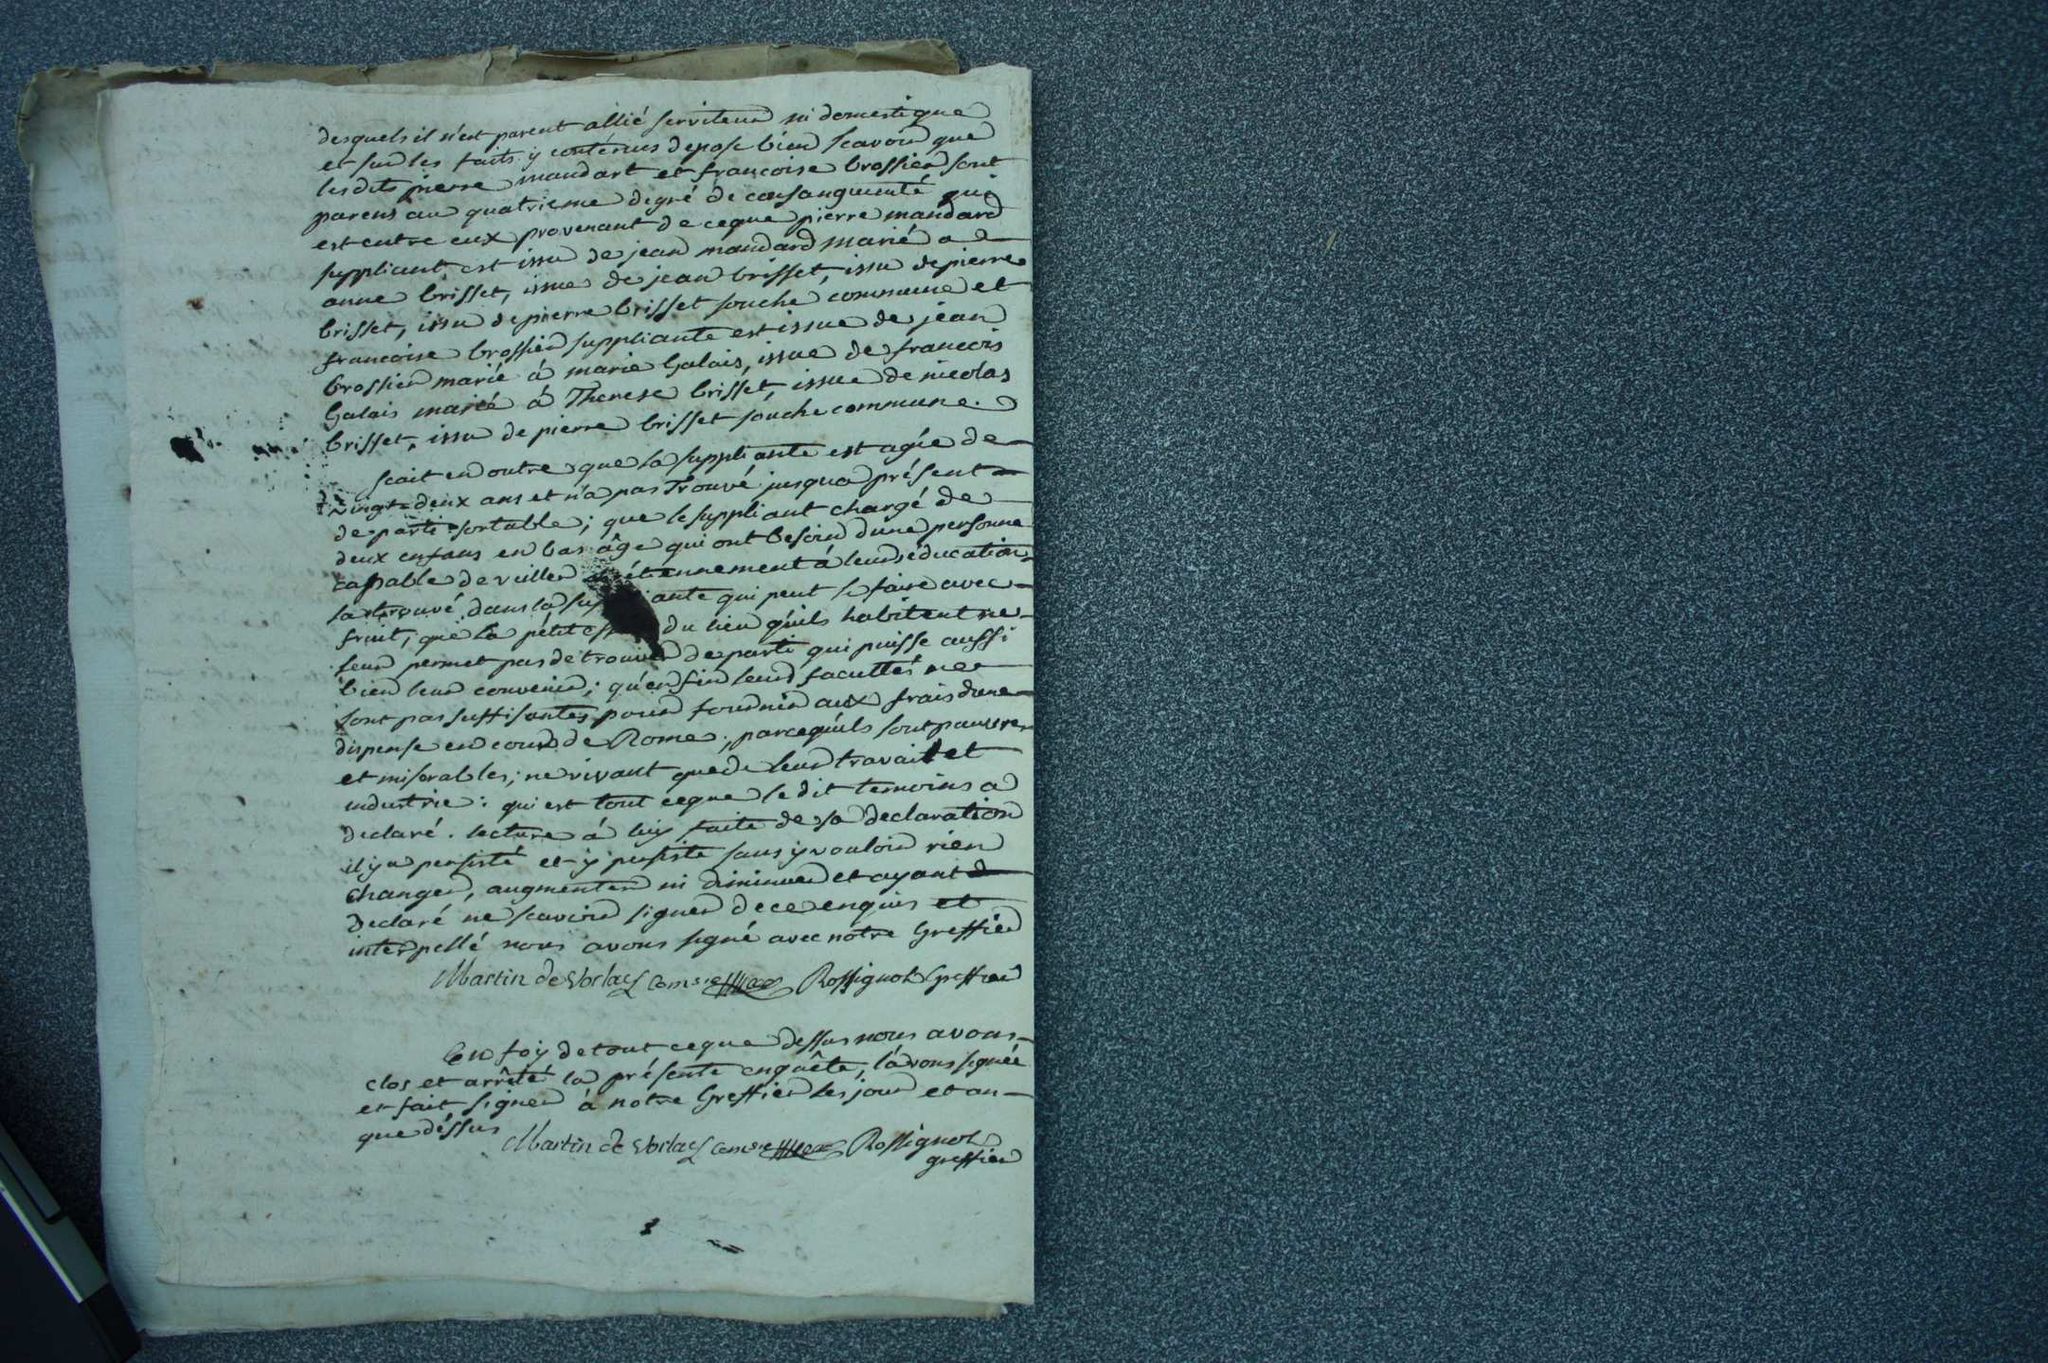 desquels il n'est parent allié serviteur ni domestique
et sur les faits y contenus depose bien scavoir que
lesdits pierre mandart et francoise brossier sont
parens au quatrieme degré de consanguinité qui
est entre eux provenant de ceque pierre mandard
suppliant est issu de jean mandard marié a
anne brisset, issue de jean brisset, issu de pierre
brisset, issu de pierre brisset souche commune et
francoise brossier suppliante est issue de jean
brossier marié à marie Galais, issue de francois
Galais marié à Therese brisset, issue de nicolas
brisset, issu de pierre brisset souche commune.
scait en outre que la suppliante est agée de
vingt-deux ans et n'a pas trouvé jusqu'a présent
de parti sortable; que le suppliant chargé de
deux enfans en bas âge qui ont besoin d'une personne
capable de veiller chrétiennement à leur éducation
la trouvé dans la suppliante qui peut le faire avec
fruit, que la petitesse du lieu qu'ils habitent ne
leur permet pas de trouver de parti qui puisse aussi
bien leur convenir; qu'enfin leurs facultés ne
sont pas suffisantes pour fournir aux frais d'une
dispense en cour de Rome, parcequ'ils sont pauvres
et miserables; ne vivant que de leur travail et
industrie: qui est tout ceque le dit temoins a
declaré. lecture à luy faite de sa declaration
il y a persisté et y persiste sans y vouloir rien
changer, augmenter ni diminuer et ayant
declaré ne scavoir signer de ce enquis et
interpellé nous avons signé avec notre Greffier
Martin de Vorlay comre Rossignol Greffier
En foy de tout ceque dessus nous avons
clos et arrêté la présente enquête, l'avons signée
et fait signer à notre Greffier les jour et an
que dessus
Martin de Vorlay comre Rossignol
greffier